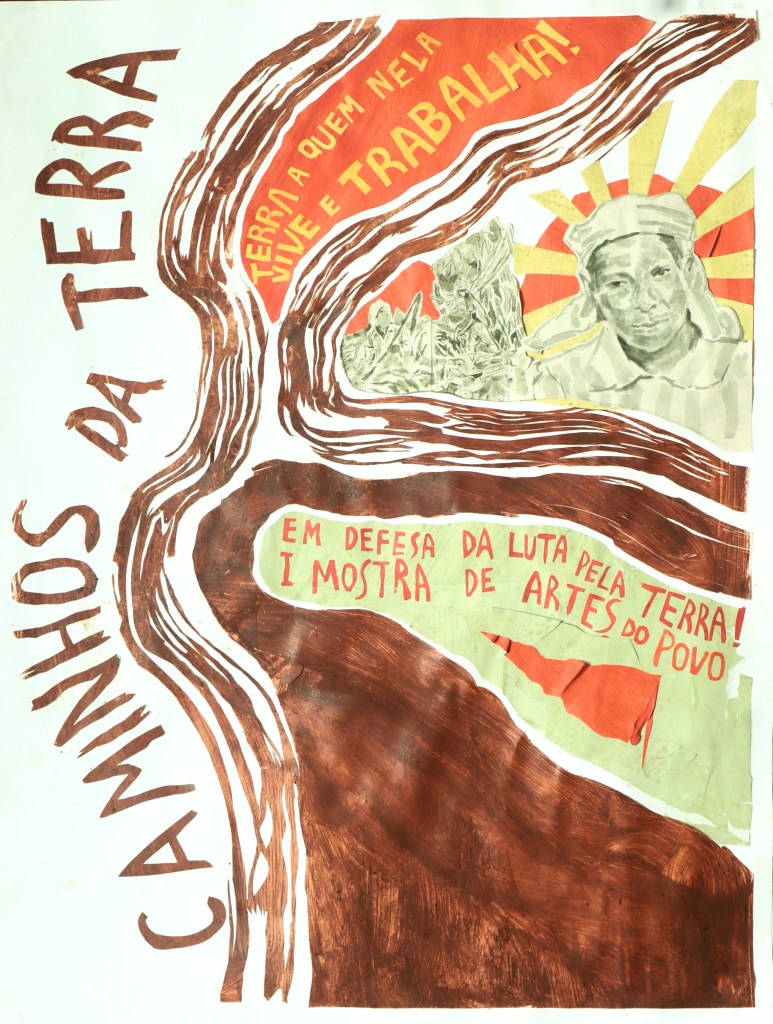 CAMINHOS DA TERRA
TERRA A QUEM NELA
VIVE E TRABALHA!
EM DEFESA DA LUTA PELA TERRA!
I MOSTRA DE ARTES DO POVO